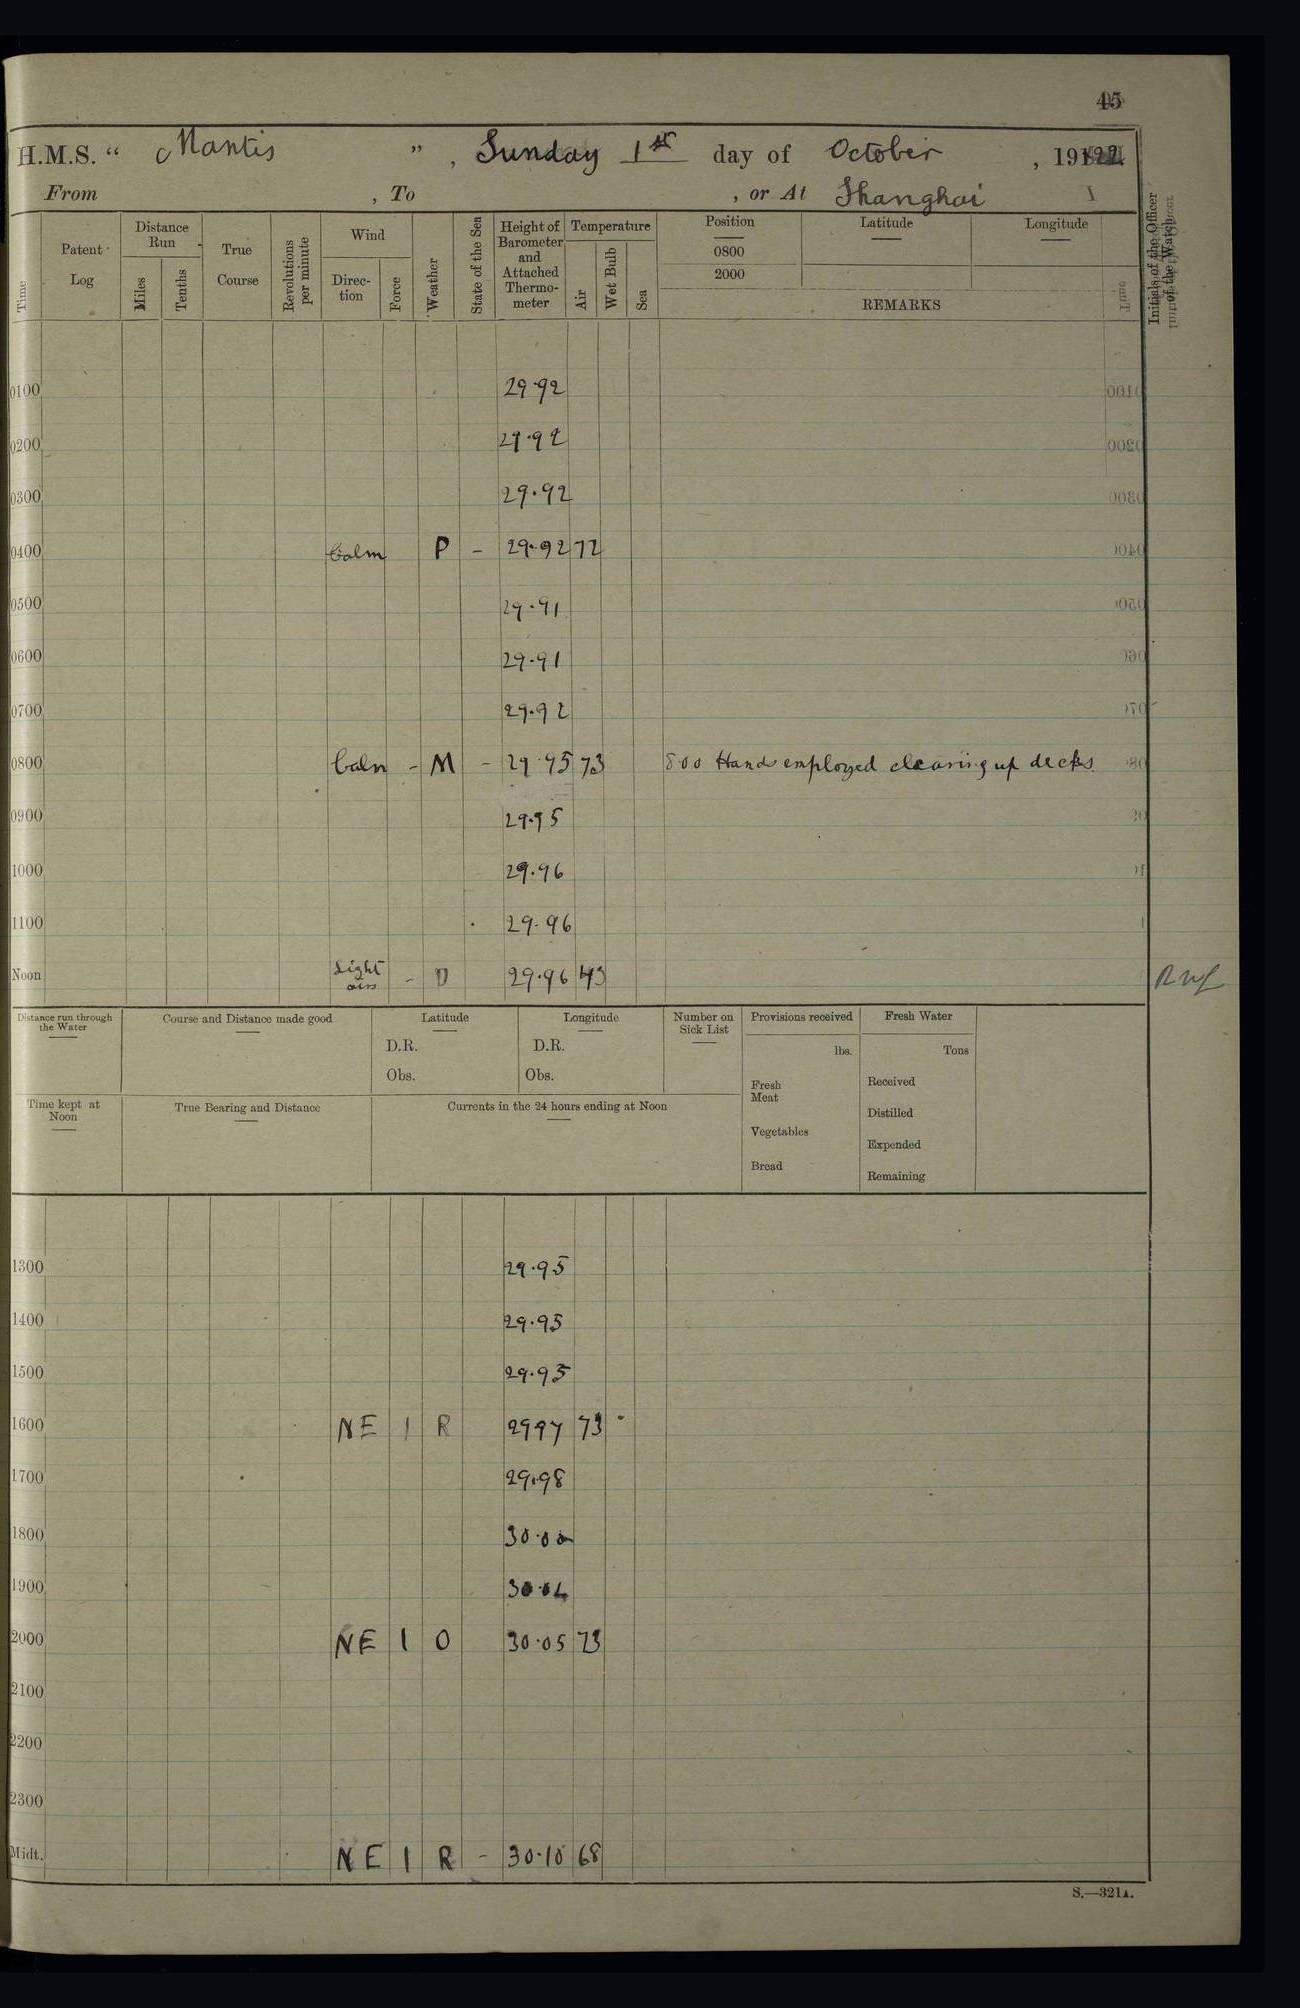 45
H.M.S. “ Mantis ” , Sunday 1st day of October , 1922
From , To , or At Shanghai
Time
Patent Log
Distance Run
Miles
Tenths
True Course
Revolutions per minute
Wind
Direction
Force
Weather
State of the Sea
Height of Barometer and Attached Thermometer
Temperature
Air
Wet Bulb
Sea
Position
0800
2000
Latitude
Longitude
REMARKS
Initials of the Officer of the Watch
0100 29.92
0200 29.92
0300 29.92
0400 Calm P – 29.92 72
0500 29.91
0600 29.91
0700 29.92
0800 Calm – M – 29.95 73 8.00 Hands employed clearing up decks
0900 29.95
1000 29.96
1100 29.96
Noon Light airs – O 29.96 73
Distance run through the Water
Course and Distance made good
Latitude
D.R.
Obs.
Longitude
D.R.
Obs.
Number on Sick List
Provisions received
lbs.
Fresh Meat
Vegetables
Bread
Fresh Water
Tons
Received
Distilled
Expended
Remaining
Time kept at Noon
True Bearing and Distance
Currents in the 24 hours ending at Noon
1300 29.95
1400 29.95
1500 29.95
1600 NE 1 R 29 97 73
1700 29.98
1800 30.00
1900 30.04
2000 NE 1 O 30.05 73
2100
2200
2300
Midt. NE 1 R – 30.10 68
S.—321A.